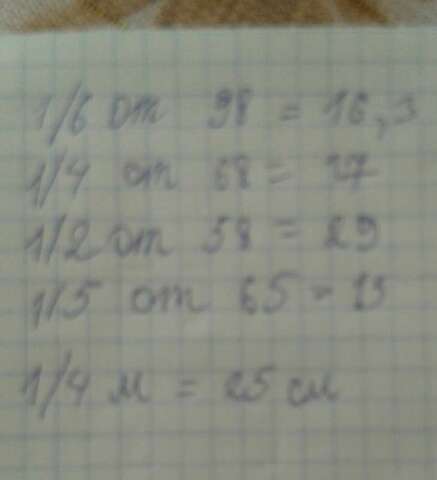 1/6 от 98 = 16,3
1/4 от 68 = 17
1/2 от 58 = 29
1/5 от 65 = 13
1/4 м = 25 см